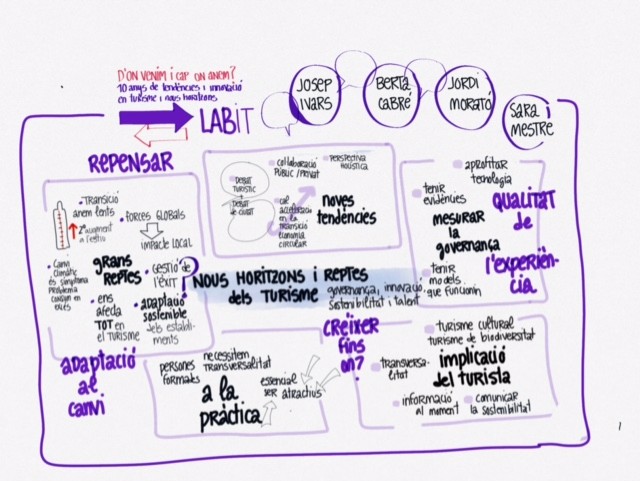 D'ON VENIM I CAP ON ANEM?
10 anys de tendències i innovació
en turisme i nous horitzons
LABIT
JOSEP
IVARS
BERTA
CABRÉ
JORDI
MORATÓ
SARA I
MESTRE
REPENSAR
TRANSICIÓ
anem lents
2º augment
a l'estiu
FORCES GLOBALS
IMPACTE LOCAL
grans
REPTES
CANVI
climàtic
és símptoma
problema
consum en
excés
ens
afecta
TOT en
el TURISME
GESTIÓ de
l'ÈXIT?
ADAPTACIÓ
sostenible
dels establi-
ments
ADAPTACIÓ
al
canvi
DEBAT
TURÍSTIC
DEBAT
de CIUTAT
COL·LABORACIÓ
PÚBLIC / PRIVAT
PERSPECTIVA
HOLÍSTICA
cal
accelerar
en la
TRANSICIÓ
ECONOMIA
CIRCULAR
noves
tendències
aprofitar
tecnologia
tenir
evidències
mesurar
la
governança
tenir
models
que funcionin
QUALITAT
de
l'experièn-
cia
NOUS HORITZONS I REPTES
dels TURISME
governança, innovació
sostenibilitat i talent
CREIXER
fins
on?
persones
formades
necessitem
TRANSVERSALITAT
a la
pràctica
essencial
ser atractius
turisme cultural
turisme de biodiversitat
TRANSVERSA-
LITAT
implicació
del turista
informació
al moment
comunicar
la sostenibilitat